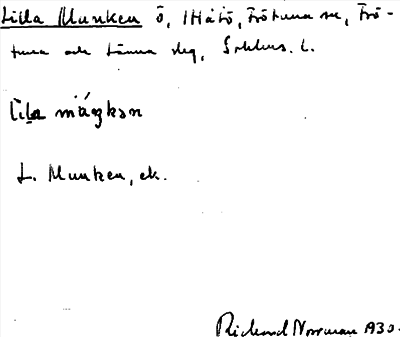 Lilla Munken ö, i Håtö, Frötuna sn, Frö-
tuna och Länna slg, Sthlms. l.
Lilla máŋkən
L. Munken, ek.
Richard Norrman 1930.